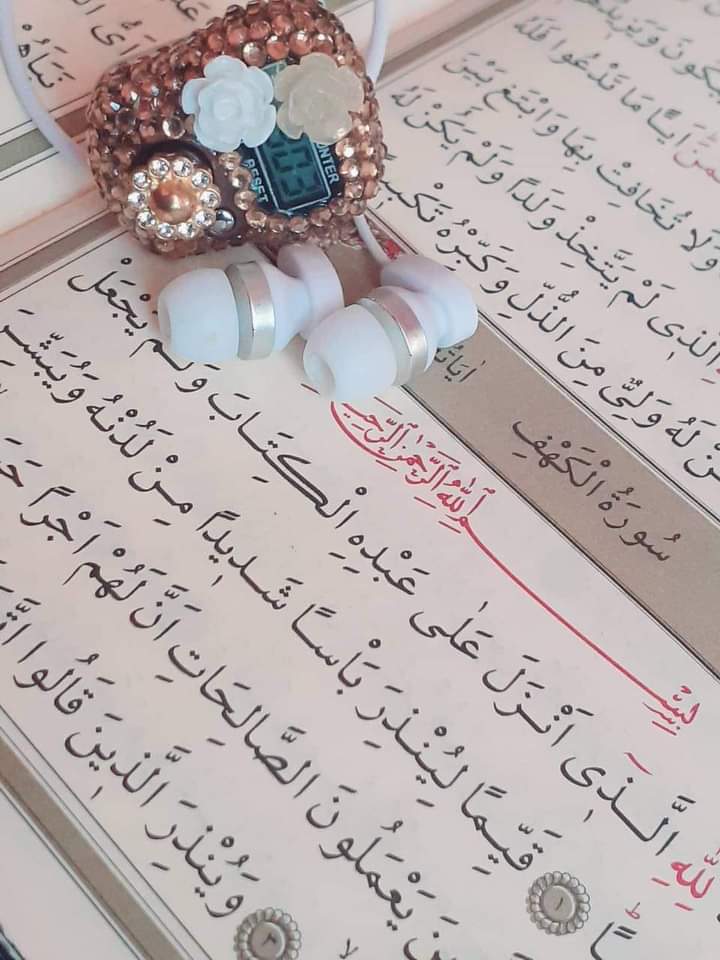 RESET
وَيَزِيدُ
اَيًّا مَا تَدْعُوا فَلَهُ
وَلَا تُخَافِتْ بِهَا وَابْتَغِ بَيْنَ
الَّذ۪ى لَمْ يَتَّخِذْ وَلَدًا وَلَمْ يَكُنْ لَهُ
لَهُ وَلِيٌّ مِنَ الذُّلِّ وَكَبِّرْهُ
سُورَةُ الْكَهْفِ
بِسْمِ اللّٰهِ الرَّحْمٰنِ الرَّح۪يمِ
لِلّٰهِ الَّذ۪ٓى اَنْزَلَ عَلٰى عَبْدِهِ الْكِتَابَ وَلَمْ يَجْعَلْ
١ قَيِّمًا لِيُنْذِرَ بَاْسًا شَد۪يدًا مِنْ لَدُنْهُ وَيُبَشِّرَ
يَعْمَلُونَ الصَّالِحَاتِ اَنَّ لَهُمْ اَجْرًا
٣ وَيُنْذِرَ الَّذ۪ينَ قَالُوا